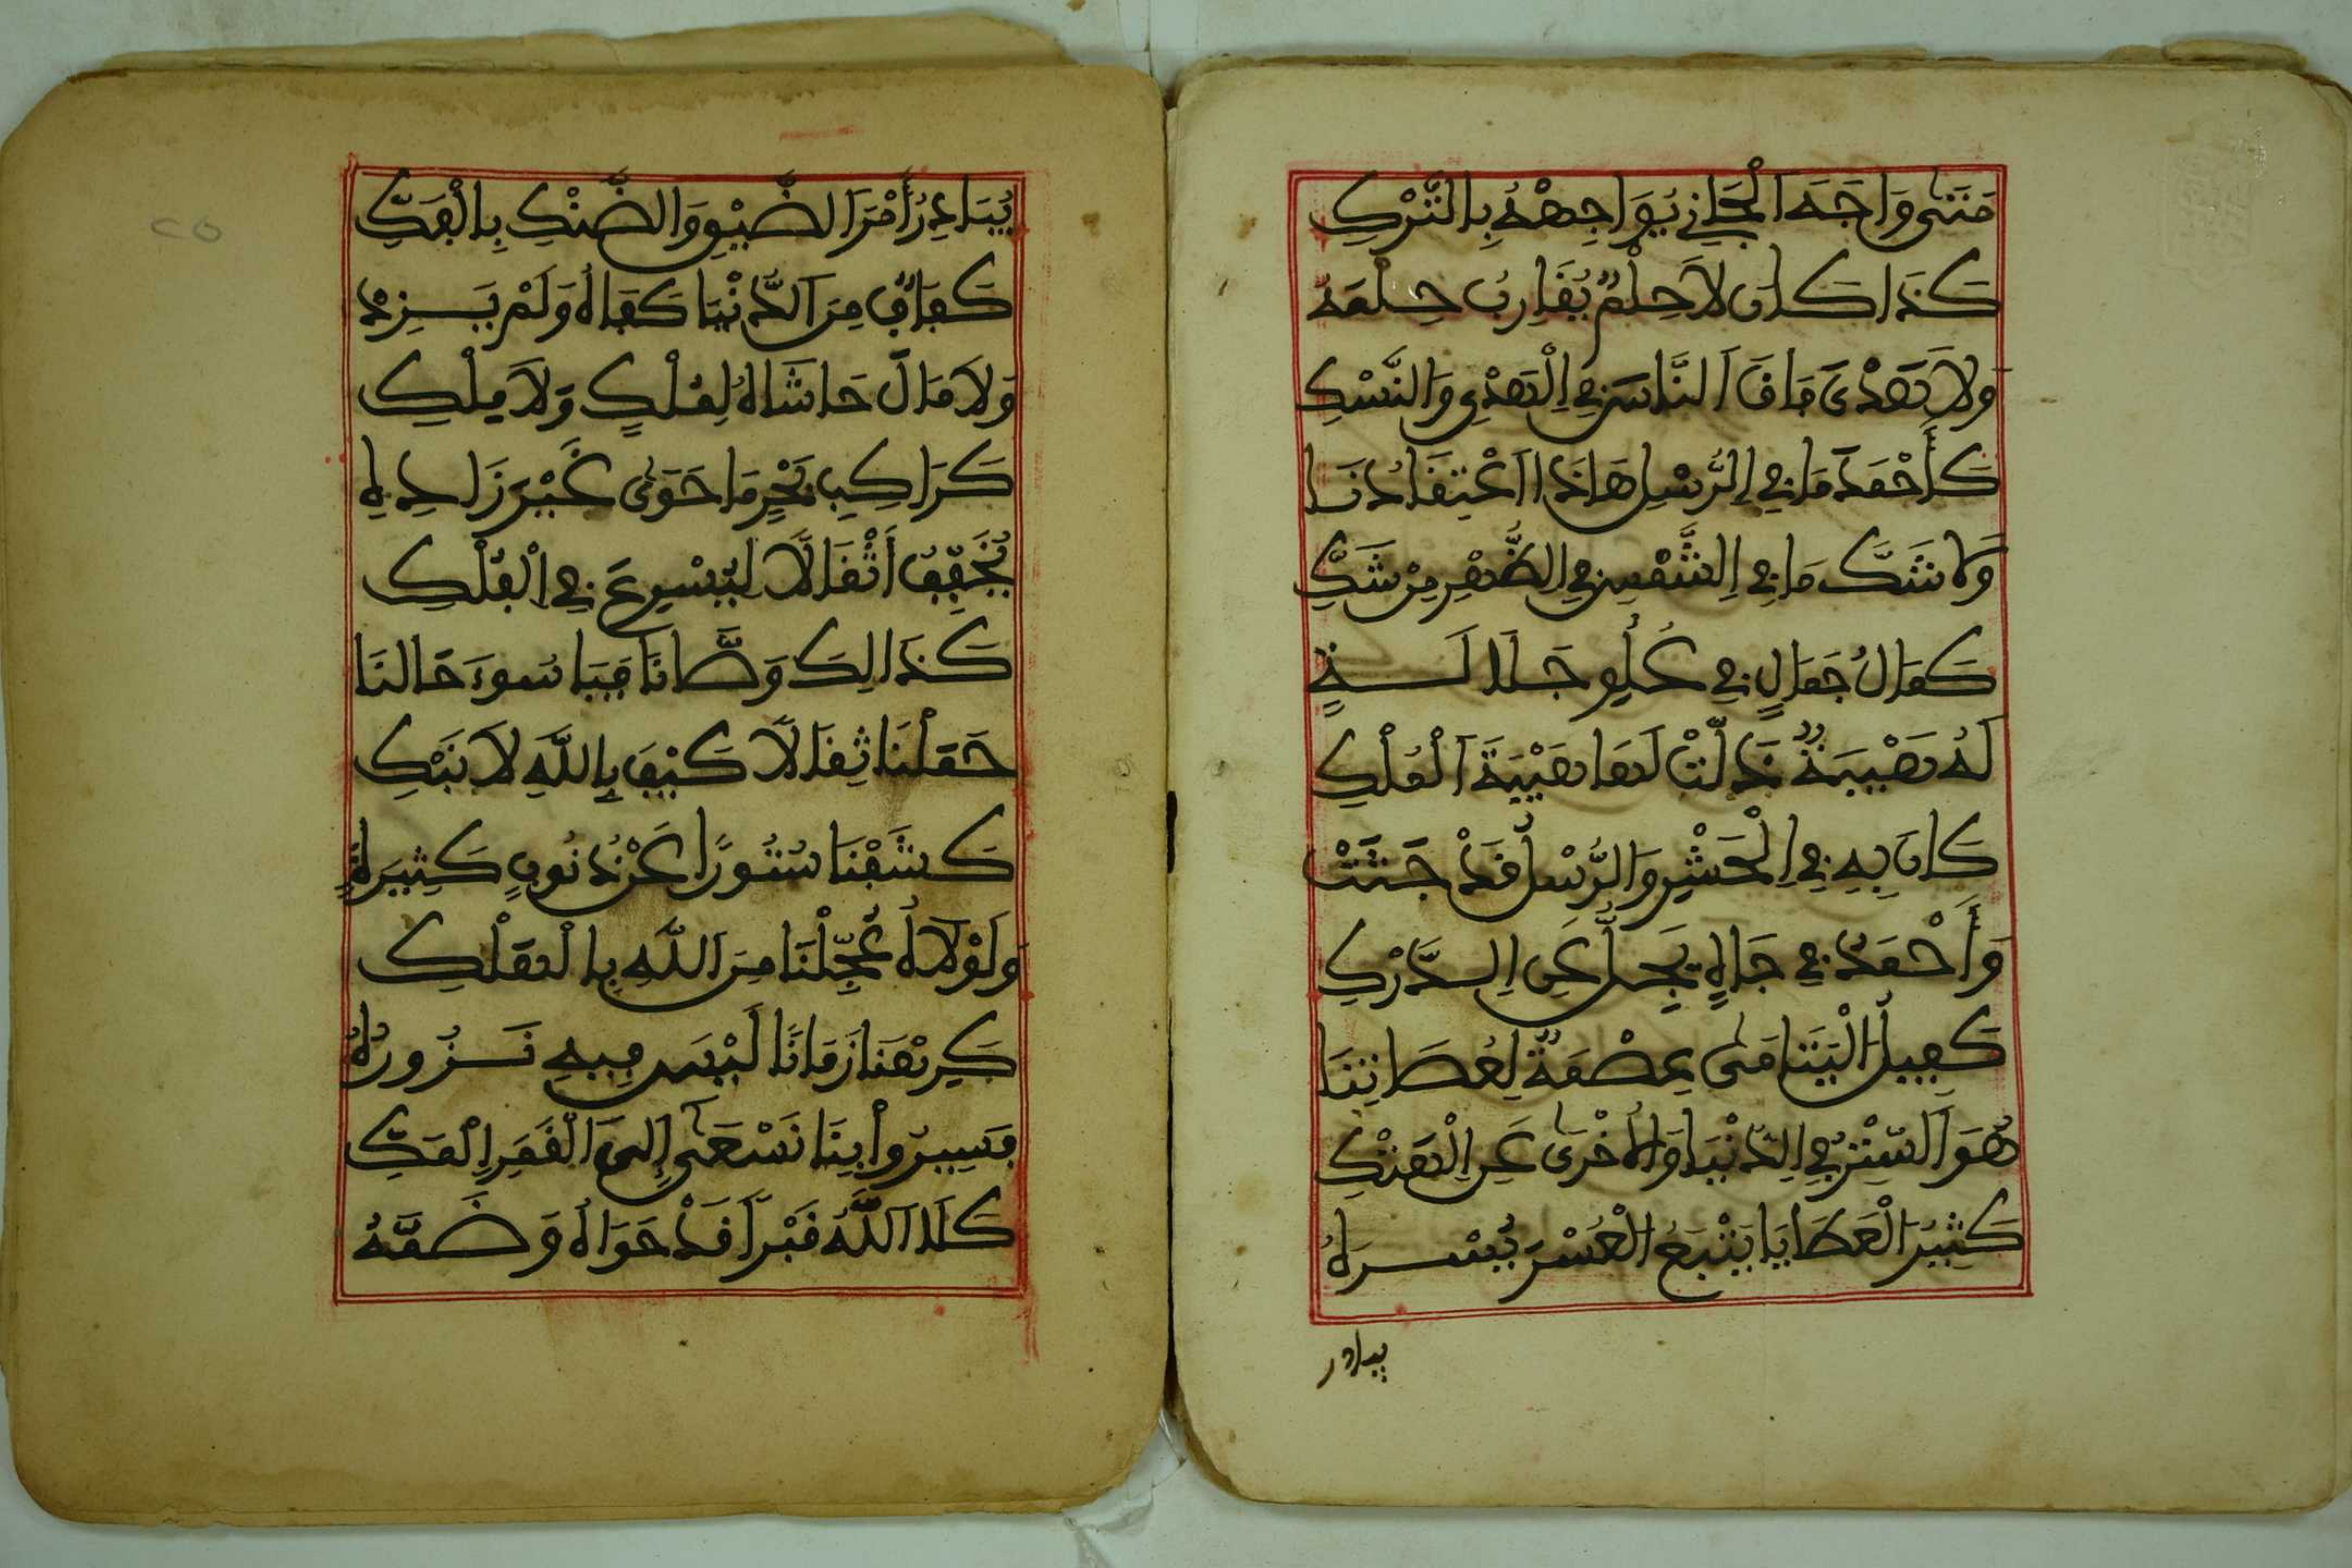 مَتَىٰ وَاجَهَ ٱلْجَانِي يُوَاجِهْهُ بِالتَّرْكِ
كَذَا كَانَ لَا حِلْمٌ يُقَارِبُ حِلْمَهُ
وَلَا هَدْىَ فَاقَ ٱلنَّاسَ فِي ٱلْهَدْيِ وَالنُّسْكِ
كَأَحْمَدَ مَا فِي ٱلرُّسْلِ هَاذَا ٱعْتِقَادُنَا
وَلَا شَكَّ مَا فِي ٱلشَّمْسِ فِي ٱلظُّهْرِ مِن شَكِّ
كَمَالُ جَمَالٍ فِي عُلُوِّ جَلَالَةٍ
لَهُ هَيْبَةٌ ذَلَّتْ لَهَا هَيْبَةُ ٱلْمُلْكِ
كَانَ بِهِ فِي ٱلْحَشْرِ وَالرُّسْلُ قَدْ جَثَتْ
وَأَحْمَدُ فِي جَاهٍ يَجِلُّ عَنِ ٱلدَّرْكِ
كَفِيلُ ٱلْيَتَامَىٰ عِصْمَةٌ لِعُصَاتِنَا
هُوَ ٱلسِّتْرُ فِي ٱلدُّنْيَا وَالْأُخْرَىٰ عَنِ ٱلْهَتْكِ
كَثِيرُ ٱلْعَطَايَا يَتْبَعُ ٱلْعُسْرَ يُسْرَهُ
يبادر
يُبَادِرُ أَمْرَ ٱلضِّيْقِ وَالضَّنْكِ بِالْفَكِّ
كَفَافٌ مِنَ ٱلدُّنْيَا كَفَاهُ وَلَمْ يَزِدْ
وَلَا مَالَ حَاشَاهُ لِمُلْكٍ وَلَا مِلْكِ
كَرَاكِبِ بَحْرٍ مَا حَوَىٰ غَيْرَ زَادِهِ
يُخَفِّفُ أَثْقَالًا لِيُسْرِعَ فِي ٱلْفُلْكِ
كَذَالِكَ وَصَّانَا فَيَا سُوءَ حَالِنَا
حَمَلْنَا ثِقَالًا كَيْفَ بِاللَّهِ لَا نَبْكِ
كَشَفْنَا سُتُورًا عَنْ ذُنُوبٍ كَثِيرَةٍ
وَلَوْلَاهُ عُجِّلْنَا مِنَ ٱللَّهِ بِالْهَلْكِ
كَرِهْنَا زَمَانًا لَيْسَ فِيهِ نَزُورُهُ
فَسِيرُواْ بِنَا نَسْعَىٰ إِلَى ٱلْقَمَرِ ٱلْمَكِّ
كَلَا ٱللَّهُ قَبْرًا قَدْ حَوَاهُ وَضَمَّهُ